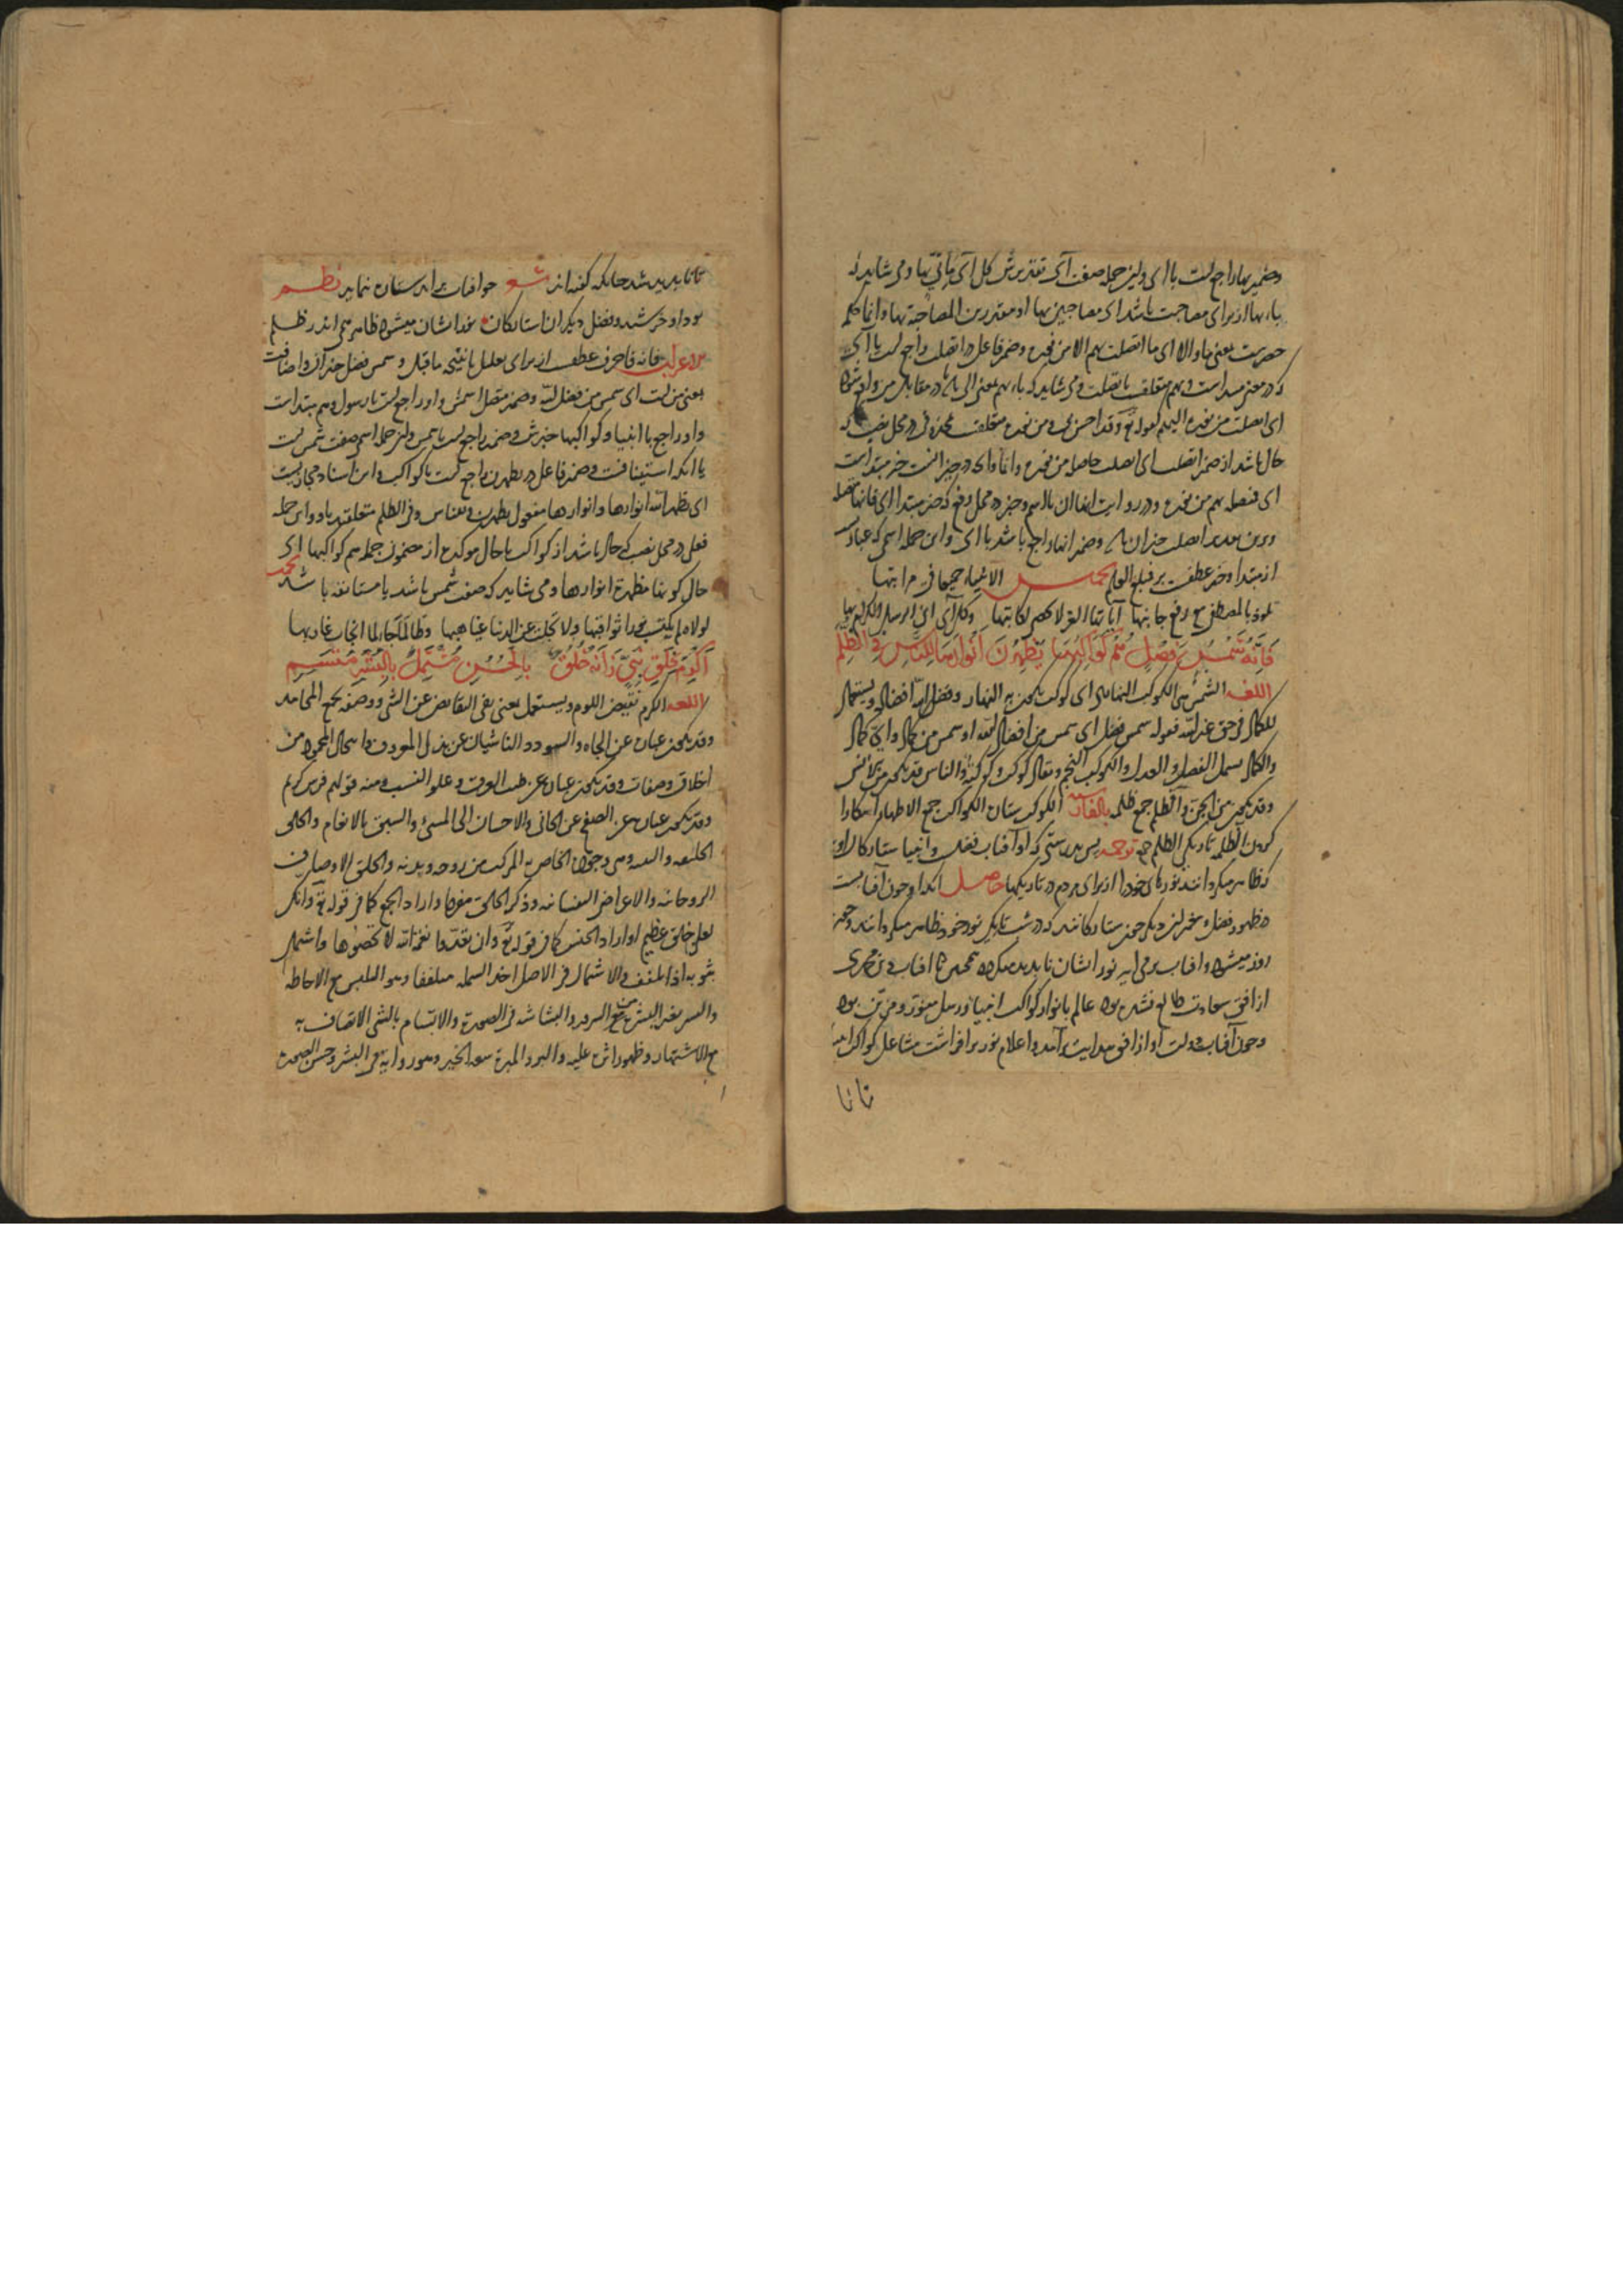 وضمیر بها راجع است با ای و این جمله صفت آی تقدیرش کل آی مأتی بها و می شاید که
باء بها از برای مصاحبت باشد ای مصاحبین بها او مقدرین المصاحبة بها و انما کلمه
حصرست بمعنی ما و الا ای ما اتصلت بهم الا من نوره و ضمیر فاعل در اتصلت راجع است با آی
که در معنی مبتداست و بهم متعلقست باتصلت و می شاید که باء بهم بمعنی الی باشد در مقابل من
ای اتصلت من نوره الیهم کقوله تع وقد احسن بی و من نوره متعلقست بمحذوف در محل نصب که
حال باشد از ضمیر اتصلت ای اتصلت حاصلة من نوره و انما و ای در حیز انست خبر مبتداست
ای متصلة بهم من نوره و در روایت انها ان با اسم و خبر در محل رفع که خبر مبتدا ای فانها متصلة
وبرین تقدیر اتصلت خبر ان باشد و ضمیر انها راجع باشد با ای و این جمله اسمی که عبارتست
از مبتدا و خبر عطفست بر فمبلغ العلم الانبیاء جمیعا فی مراتبها
تلوذ بالمصطفی مع رفع جانبها آیاتنا الغر لا تحصی لکاتبها وکل آی اتی الرسل الکرام بها
فَاِنَّهُ شَمْسُ فَضْلٍ هُمْ كَوَاكِبُهَا يُظْهِرْنَ اَنْوَارَهَا لِلنَّاسِ فِي الظُّلَمِ
اللغة الشمس هی الکوکب النهاری ای کوکب یکون به النهار وفضل الله افضاله ویستعمل
للکمال فی حق غیر الله فقوله شمس فضل ای شمس من افضال الله او شمس من کمال وای کمال
والکمال یشمل الفضل والعدل والکوکب النجم ویقال کوکب وکوکبة والناس قد یکون من الانس
وقد یکون من الجن والظلم جمع ظلمة بالفارسیة الکوکب ستاره الکواکب جمع الاظهار آشکارا
کردن الظلمة تاریکی الظلم جمع ترجمه پس بدرستی که او آفتاب فضلست و انبیا ستارگان اویند
که ظاهر میگردانند نورهای خود را از برای مردم در تاریکیها حاصل آنکه او چون آفتابست
در ظهور فضل و پیغمبران دیگر چون ستارگانند که در شب تاریک نور خود ظاهر میگردانند و چون
روز میشود و آفتاب برمی آید نور ایشان ناپدید میگردد همچنین تا آفتاب دین محمدی
از افق سعادت طالع نشده بود عالم بانوار کواکب انبیا و رسل منور و مزین بود
و چون آفتاب دولت او از افق هدایت برآمد و اعلام نور برافراشت مشاعل کواکب انبیا
تا نا
تا ناپدید شد چنانکه گفته اند شعر چو آفتاب برآمد ستاره ننماید نظم
بود او خورشید و فضل دیگران استارگان نور ایشان میشود ظاهر همی اندر ظلم
الاعراب فانه فا حرف عطفست از برای تعلیل یا نتیجه ماقبل و شمس فضل خبر ان و اضافت
بمعنی من است ای شمس من فضل الله و ضمیر متصل اسمش و او راجع است با رسول و هم مبتداست
و او راجع با انبیا و کواکبها خبرش و ضمیر راجع است با شمس و این جمله اسمی صفت شمس است
یا آنکه استینافست و ضمیر فاعل در یظهرن راجع است با کواکب و این اسناد مجازیست
ای یظهر الله انوارها و انوارها مفعول یظهرن و للناس و فی الظلم متعلقند باو و این جمله
فعلی در محل نصب که حال باشد از کواکب یا حال موکده از مضمون جمله هم کواکبها ای
حال کونها مظهرة انوارها و می شاید که صفت شمس باشد یا مستانفه باشد
لولاه لم یکتسب نورا ثواقبها ولا تجلت عن الدنیا غیاهبها وطالما حار لما انجاب غاربها
اَكْرِمْ بِخَلْقِ نَبِيٍّ زَانَهُ خُلُقٌ بِالْحُسْنِ مُشْتَمِلٍ بِالْبِشْرِ مُتَّسِمِ
اللغة الکرم نقیض اللوم ویستعمل بمعنی نفی النقایص عن الشی ووصفه بجمیع المحامد
وقد یکون عبارة عن الجاه والسودد الناشیان عن بذل المعروف واستکمال المحمود من
اخلاق وصفات وقد یکون عبارة عن طیب العرق وعلو النسب ومنه قولهم فرس کریم
وقد یکون عبارة عن الصفح عن الجانی والاحسان الی المسیء والسبق بالانعام والخلق
الخلیقة والبنیة وهی وجود الخاص به المرکب من روحه وبدنه والخلق الاوصاف
الروحانیة والاعراض النفسانیة وذکر الخلق مفردا واراد الجمع کما فی قوله تع وانک
لعلی خلق عظیم او اراد الجنس کما فی قوله تع وان تعدوا نعمة الله لا تحصوها واشتمل
بثوبه اذا تلفف والاشتمال فی الاصل اخذ الشملة متلففا وهو التلبس مع الاحاطة
والبشر بغیر البشرة من السرور والبشاشة فی الصورة والاتسام بالشی الاتصاف به
مع الاشتهار وظهور اثره علیه والبر والمبرة سعة الخیر وهو روایة فی البشر وحسن الصورة